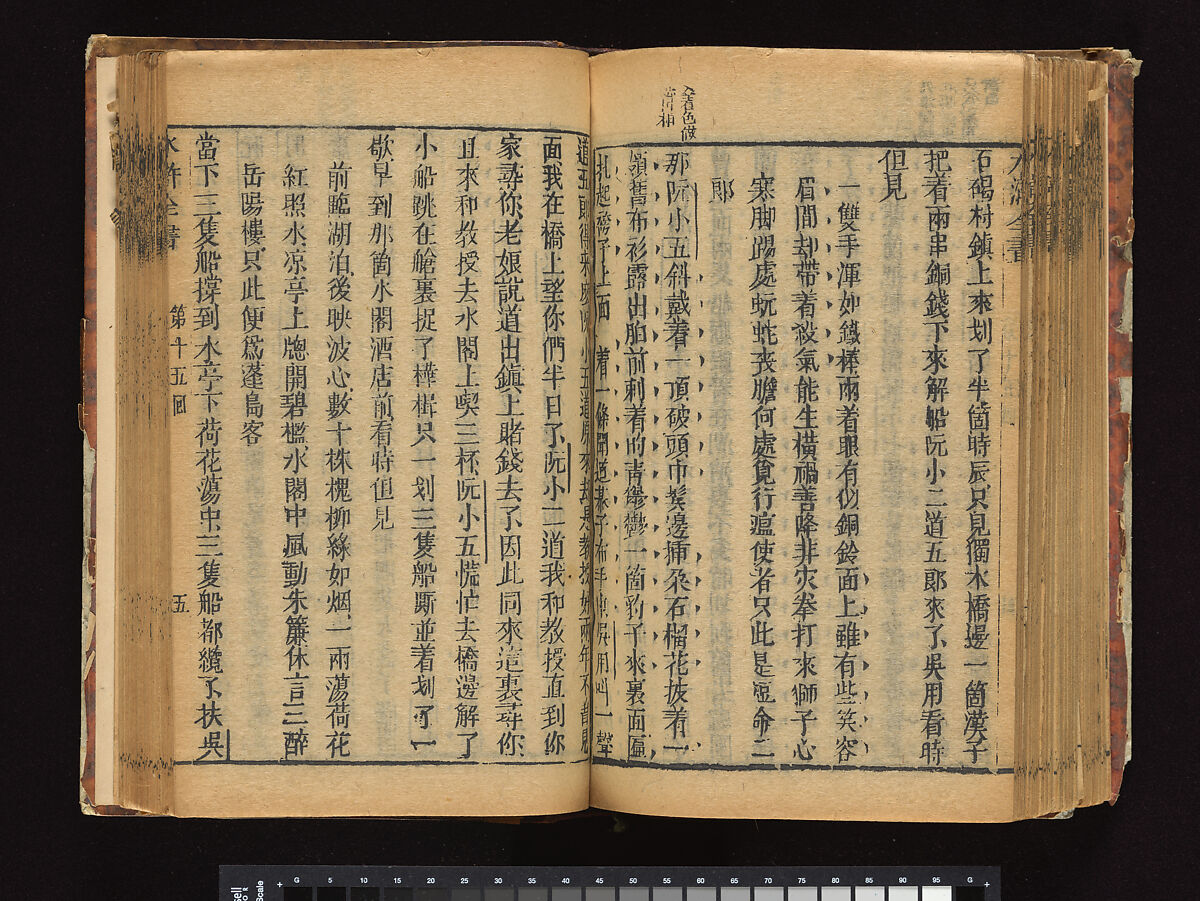 石碣村鎮上來划了半箇時辰只見獨木橋邊一箇漢子
把着兩串銅錢下來解船阮小二道五郎來了吳用看時
但見
一雙手渾如鐵棒兩着眼有似銅鈴面上雖有些笑容
眉間却帶着殺氣能生橫禍善降非灾拳打來獅子心
寒脚踢處蚖蛇喪膽何處覓行瘟使者只此是短命二
郎
那阮小五斜戴着一頂破頭巾鬢邊揷朶石榴花披着一
領舊布衫露出胸前刺着的青鬱鬱一箇豹子來裏面匾
扎起袴子上面 着一條間道棊子布手巾吳用叫一聲
道五郎得采麽阮小五道原來却是教授好兩年不曾見
面我在橋上望你們半日了阮小二道我和教授直到你
家尋你老娘說道出鎮上賭錢去了因此同來這裏尋你
且來和教授去水閣上喫三杯阮小五慌忙去橋邊解了
小船跳在艙裏捉了樺楫只一划三隻船厮並着划了一
歇早到那箇水閣酒店前看時但見
前臨湖泊後映波心數十株槐柳綠如烟一兩蕩荷花
紅照水凉亭上牕開碧檻水閣中風動朱簾休言三醉
岳陽樓只此便爲蓬島客
當下三隻船撑到水亭下荷花蕩中三隻船都纜了扶吳
水滸全書
第十五回
五
5 10 15 20 25 30 35 40 45 50 55 60 65 70 75 80 85 90 95